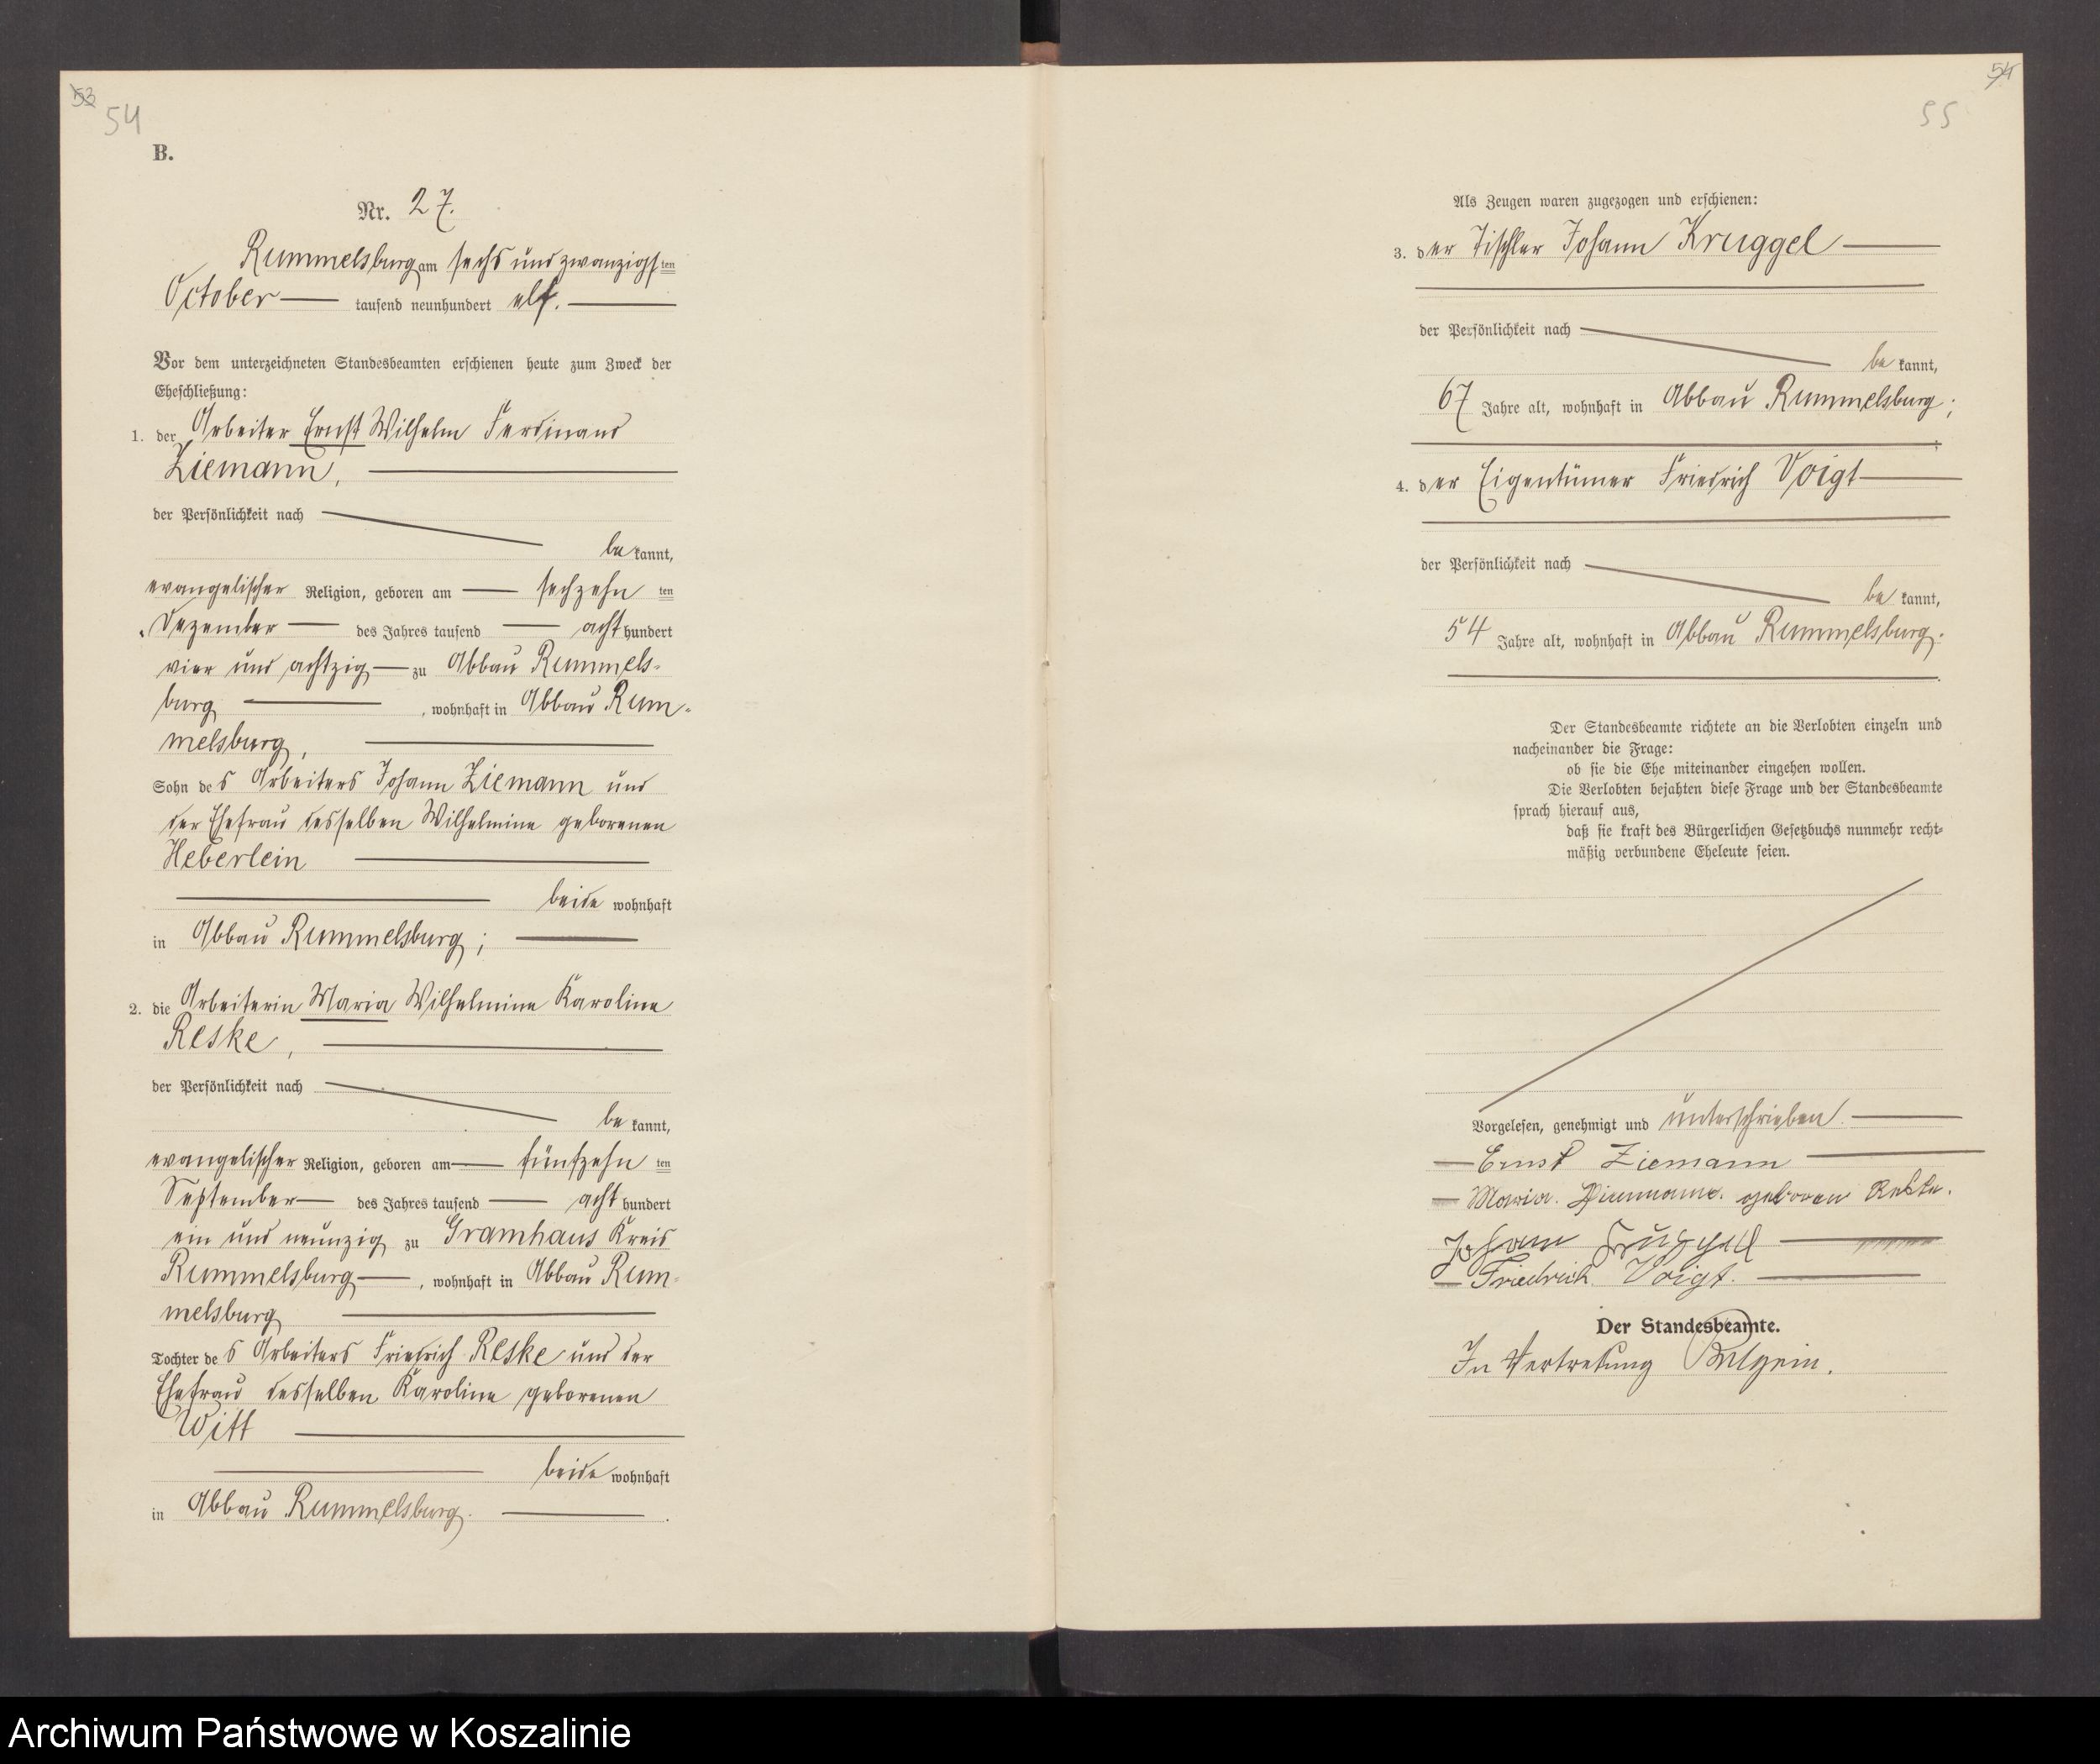 53
54
B.
Nr. 27.
Rummelsburg am sechs und zwanzigsten
October tausend neunhundert elf.
Vor dem unterzeichneten Standesbeamten erschienen heute zum Zweck der
Eheschließung:
1. der Arbeiter Ernst Wilhelm Ferdinand
Ziemann,
der Persönlichkeit nach
bekannt,
evangelischer Religion, geboren am sechzehnten
Dezember des Jahres tausend achthundert
vier und achtzig zu Abbau Rummels-
burg, wohnhaft in Abbau Rum-
melsburg,
Sohn des Arbeiters Johann Ziemann und
der Ehefrau desselben Wilhelmine geborenen
Heberlein
beide wohnhaft
in Abbau Rummelsburg;
2. die Arbeiterin Maria Wilhelmine Karoline
Reske,
der Persönlichkeit nach
bekannt,
evangelischer Religion, geboren am fünfzehnten
September des Jahres tausend achthundert
ein und neunzig zu Gramhaus Kreis
Rummelsburg, wohnhaft in Abbau Rum-
melsburg
Tochter des Arbeiters Friedrich Reske und der
Ehefrau desselben Karoline geborenen
Witt
beide wohnhaft
in Abbau Rummelsburg.
54
55
Als Zeugen waren zugezogen und erschienen:
3. der Tischler Johann Kruggel
der Persönlichkeit nach
bekannt,
67 Jahre alt, wohnhaft in Abbau Rummelsburg;
4. der Eigentümer Friedrich Voigt
der Persönlichkeit nach
bekannt,
54 Jahre alt, wohnhaft in Abbau Rummelsburg.
Der Standesbeamte richtete an die Verlobten einzeln und
nacheinander die Frage:
ob sie die Ehe miteinander eingehen wollen.
Die Verlobten bejahten diese Frage und der Standesbeamte
sprach hierauf aus,
daß sie kraft des Bürgerlichen Gesetzbuchs nunmehr recht-
mäßig verbundene Eheleute seien.
Vorgelesen, genehmigt und unterschrieben.
Ernst Ziemann
Maria Ziemann geboren Reske.
Johann Kruggell
Friedrich Voigt.
Der Standesbeamte.
In Vertretung
Archiwum Państwowe w Koszalinie